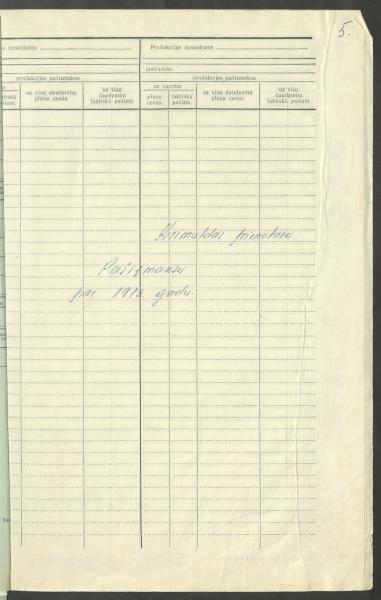 5.
Produkcijas nosaukums
Produkcijas nosaukums
Izstrādāts:
produkcijas pašizmaksa
produkcijas pašizmaksa
uz visu daudzumu plāna cenās
uz visu daudzumu faktiskā pašizm.
uz vienību
plāna cenās
faktiskā pašizm.
uz visu daudzumu plāna cenās
uz visu daudzumu faktiskā pašizm.
Krimuldas pienotava
Pašizmaksa
par 1973. gadu.